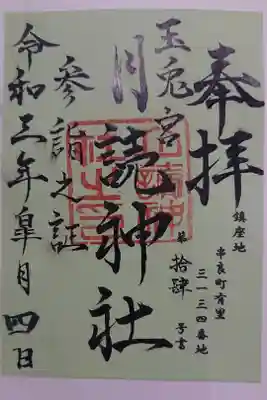 奉拝
鎮座地
串良町有里
三一三四番地
玉兎宮
月読神社
第拾肆号書
参詣之証
令和三年皐月四日